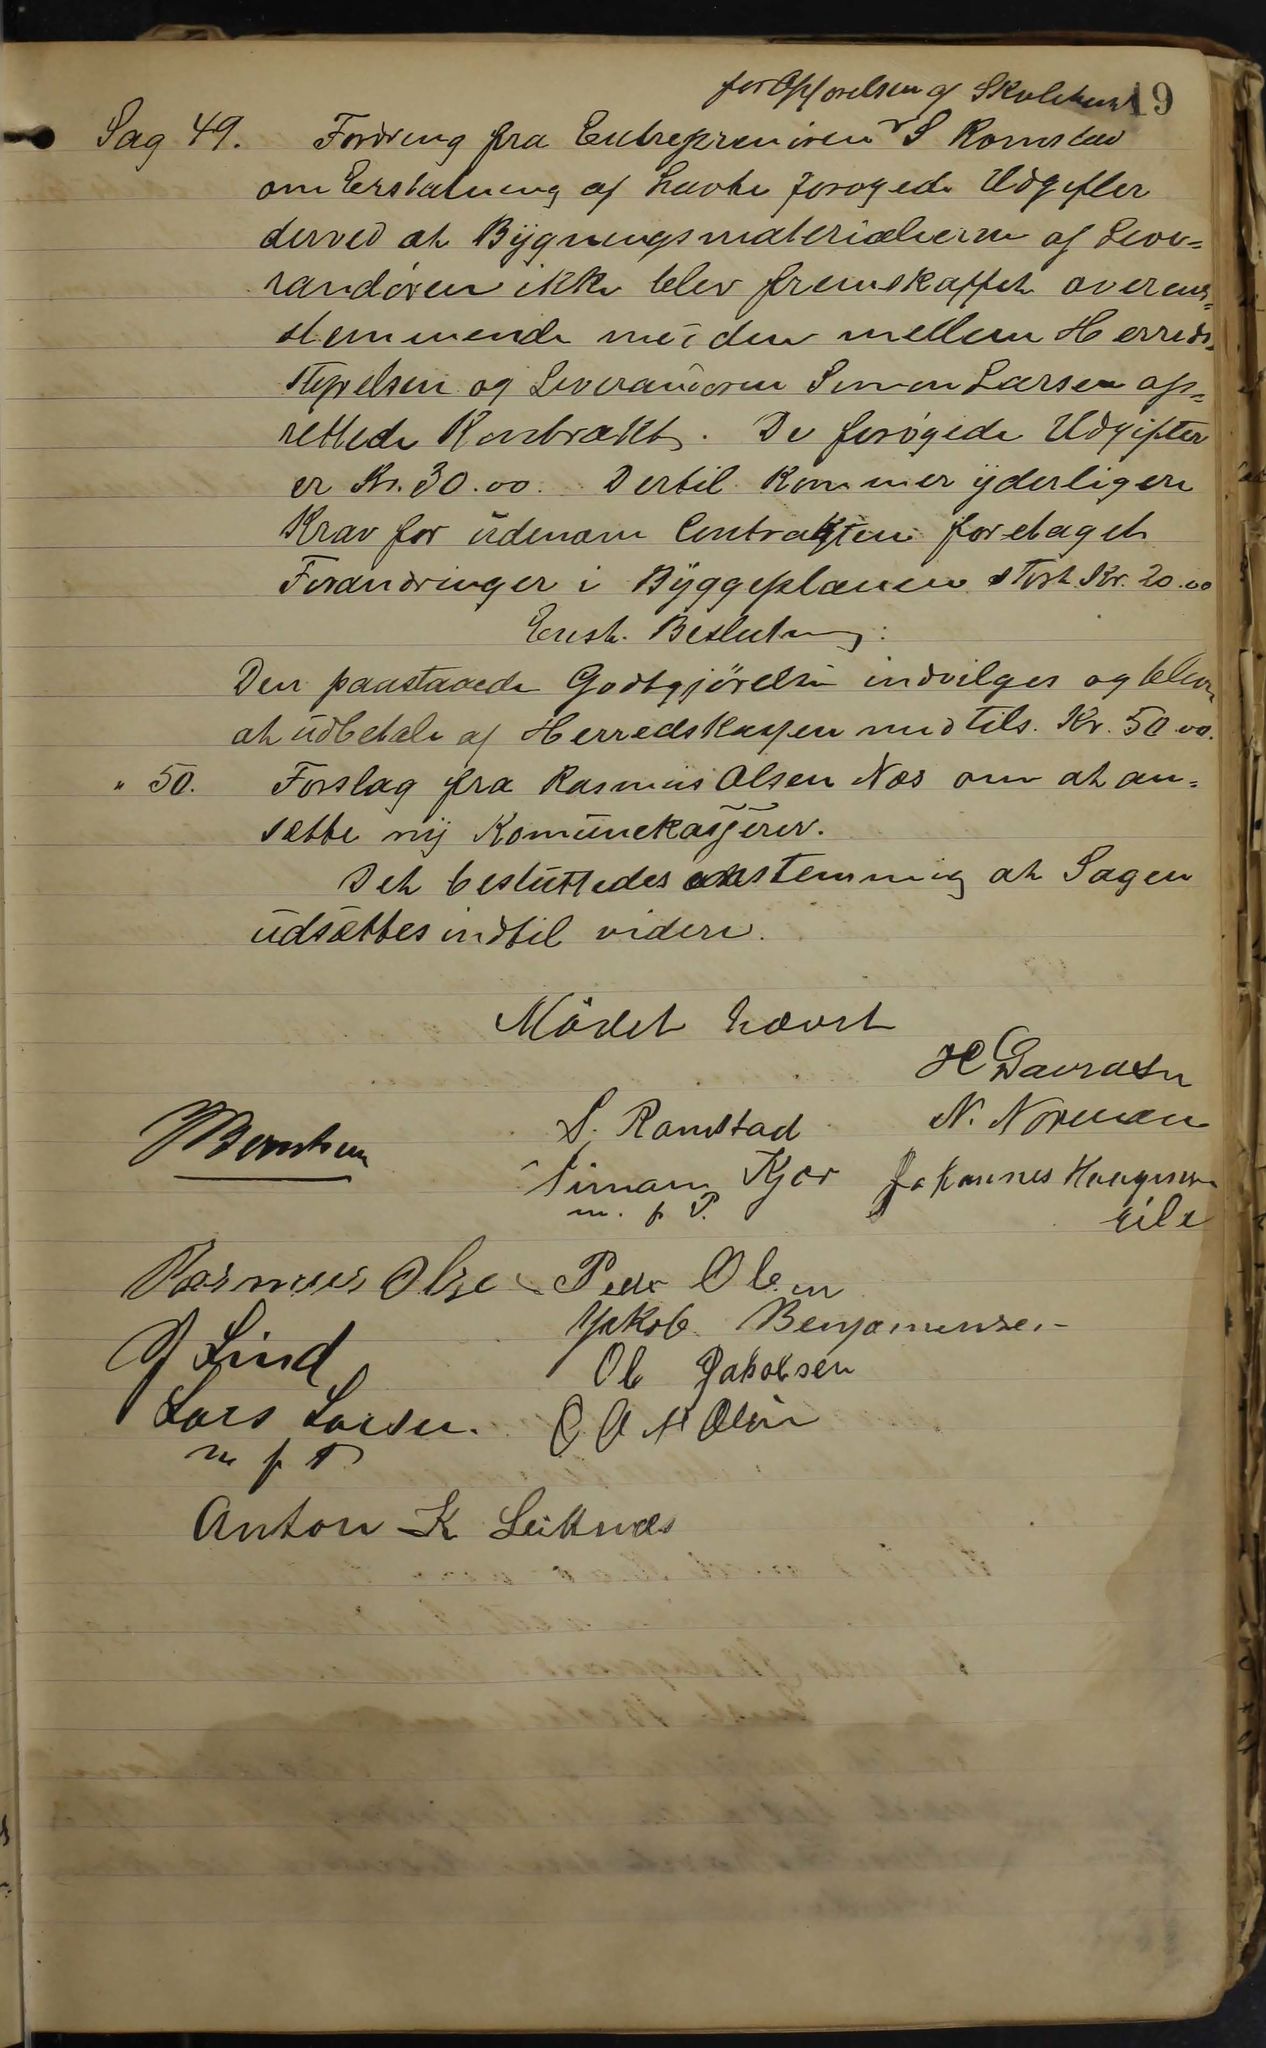 for Opførelsen af Skolehus 19
Sag 49. Fordring fra Entreprenøren S Romstad
om Erstatning af havte forøgede Udgifter
derved at Bygningsmaterialierne af Leve-
randøren ikke blev fremskaffet overens-
stemmende med den mellem Herreds-
styrelsen og Leverandøren Simon Larsen op-
rettede Kontrakt. De forøgede Udgifter
er Kr. 30.00. Dertil kommer yderligere
Krav for udenom Contrakten foretaget
Forandringer i Byggeplanen stort Kr. 20.00
Enst. Beslutning:
Den paastaaede Godtgjörelse indvilges og blev
at udbetale af Herredskassen med tils. Kr. 50.00.
" 50. Forslag fra Rasmus Olsen Næs om at an-
sætte ny Komunekasserer.
Det besluttedes enstemmig at Sagen
udsættes indtil videre.
Mödet hævet
S. Romstad N. Norman
Timan Kjær Johannes Haagensen
m. f. P. Eile
Rasmus Olsen Peder Olsen
Jakob Benjaminsen
J Lind
Ole Jakobsen
Lars Larsen. O A M Olsen
m f P
Anton K Leiknæs